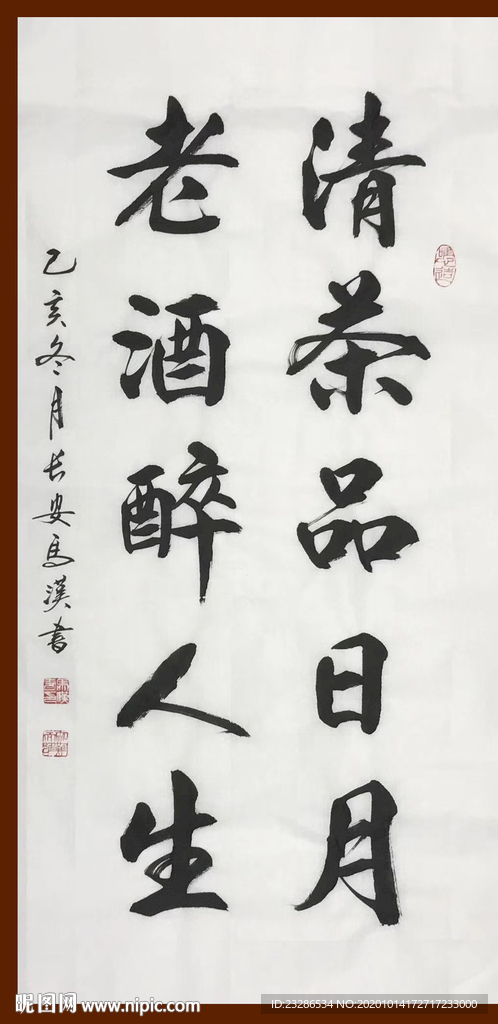 清茶品日月
老酒醉人生
己亥冬月长安马汉书
昵图网 www.nipic.com
ID:23286534 NO:20201014172717233000